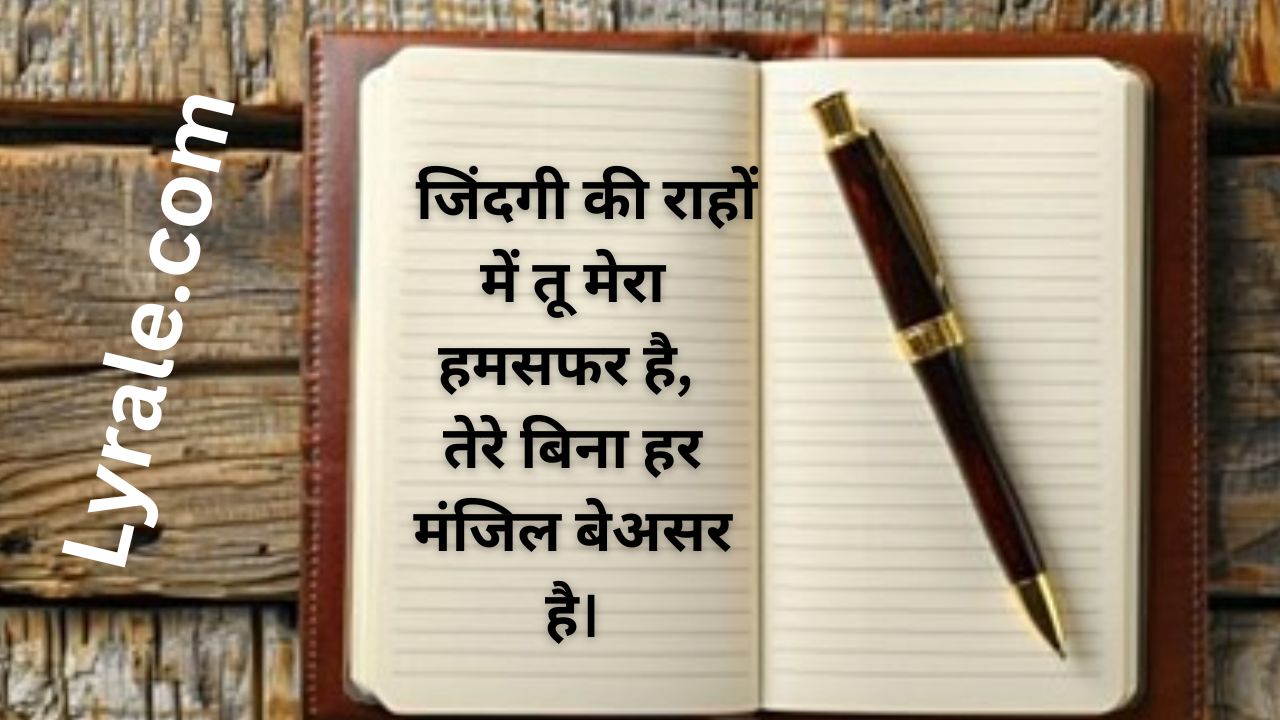 Lyrale.com
जिंदगी की राहों
में तू मेरा
हमसफर है,
तेरे बिना हर
मंजिल बेअसर
है।